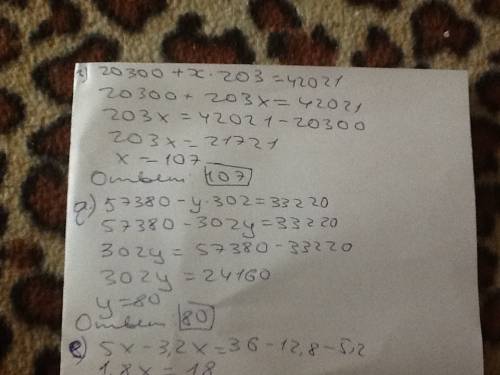 г) 20300 + x · 203 = 42021
20300 + 203x = 42021
203x = 42021 - 20300
203x = 21721
x = 107
Ответ: 107
д) 57380 - y · 302 = 33220
57380 - 302y = 33220
302y = 57380 - 33220
302y = 24160
y = 80
Ответ 80
е) 5x - 3,2x = 36 - 12,8 - 5,2
1,8x = 18